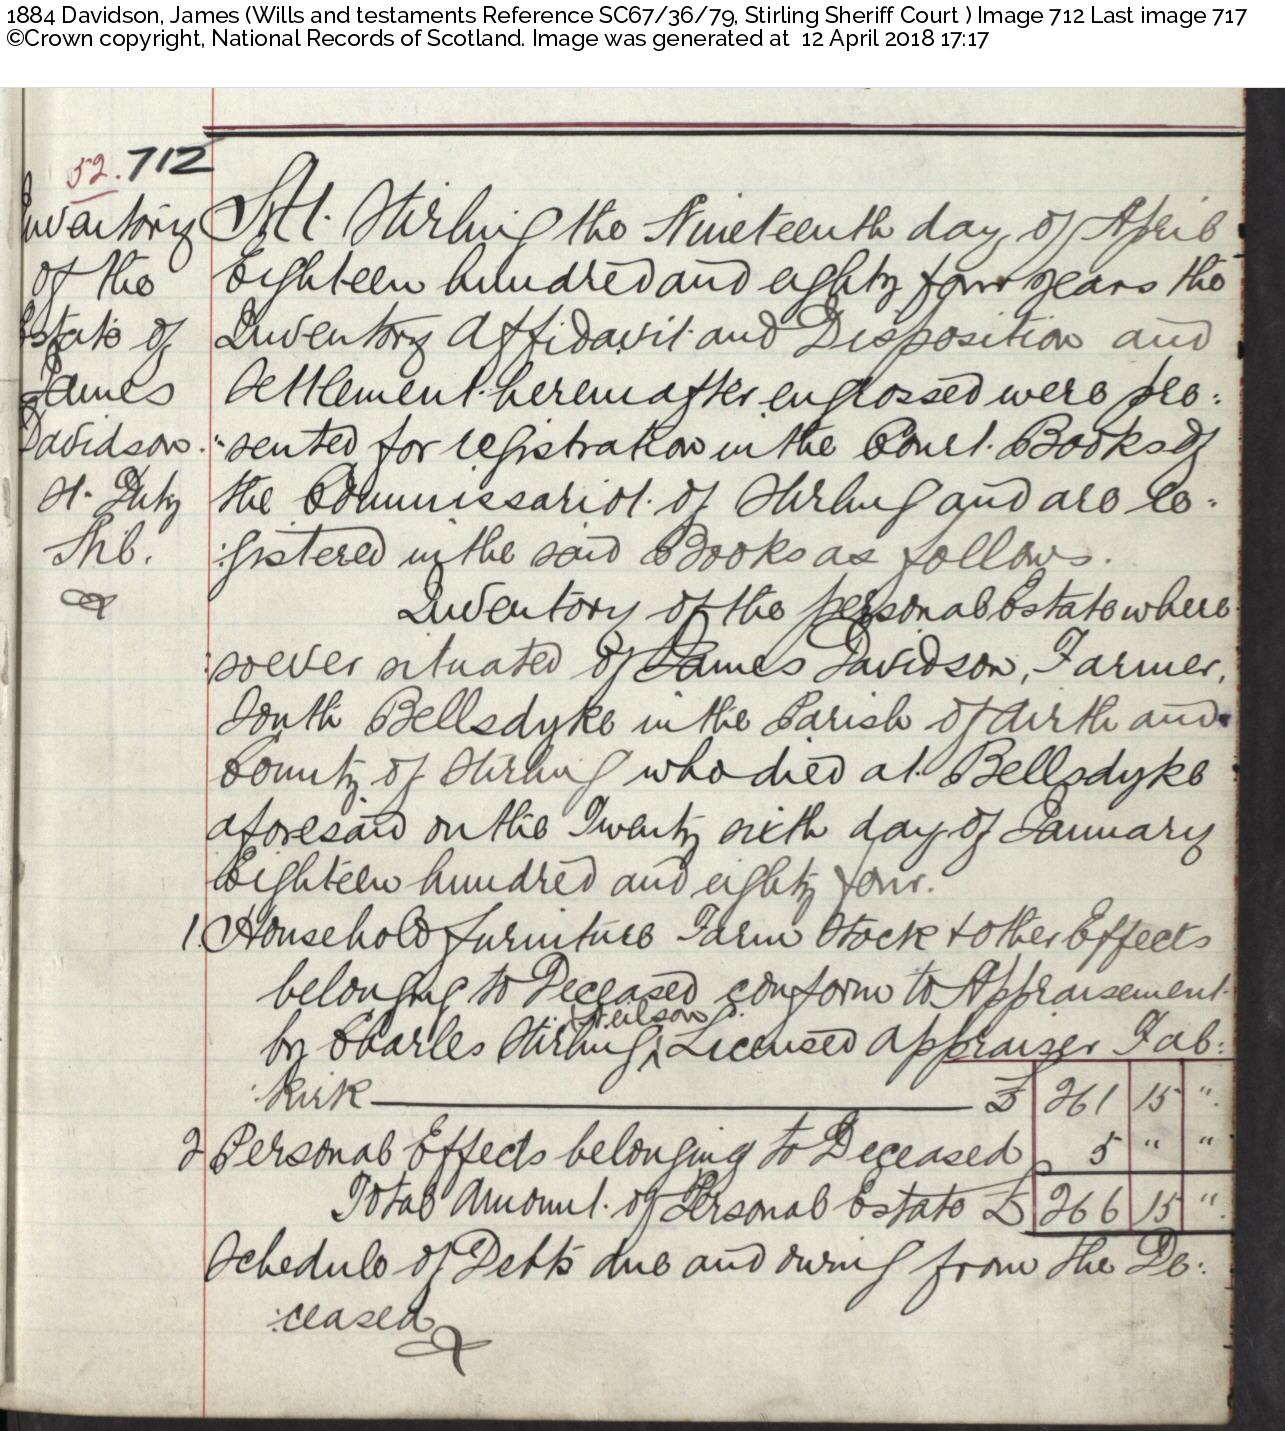 1884 Davidson, James (Wills and testaments Reference SC67/36/79, Stirling Sheriff Court ) Image 712 Last image 717
©Crown copyright, National Records of Scotland. Image was generated at 12 April 2018 17:17
52. 712
Inventory
of the
Estate of
James
Davidson.
At Stirling the Nineteenth day of April
Eighteen hundred and eighty four years the
Inventory Affidavit and Disposition and
Settlement hereinafter engrossed were pre:
:sented for registration in the Court Books of
the Commissariot of Stirling and are re:
:gistered in the said Books as follows.
Inventory of the personal Estate where
:soever situated of James Davidson, Farmer,
South Bellsdyke in the Parish of Airth and
County of Stirling who died at Bellsdyke
aforesaid on the Twenty sixth day of January
Eighteen hundred and eighty four.
1. Household furniture Farm Stock & other Effects
belonging to Deceased conform to Appraisement
by Charles Stirling Neilson Licensed Appraiser Fal:
:kirk £ 261 15 "
2 Personal Effects belonging to Deceased 5 " "
Total Amount of Personal Estate £ 266 15 "
Schedule of Debts due and owing from the De:
:ceased